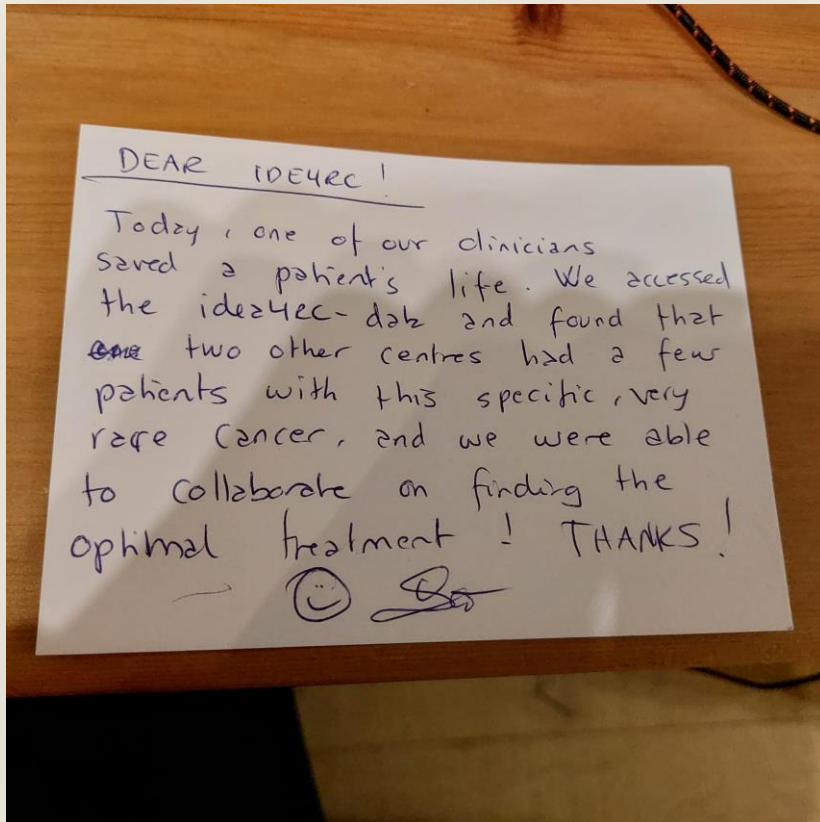 DEAR IDE4RC!
Today, one of our clinicians
saved a patient's life. We accessed
the idea4RC-data and found that
two other centres had a few
patients with this specific, very
rare cancer, and we were able
to collaborate on finding the
optimal treatment! THANKS!